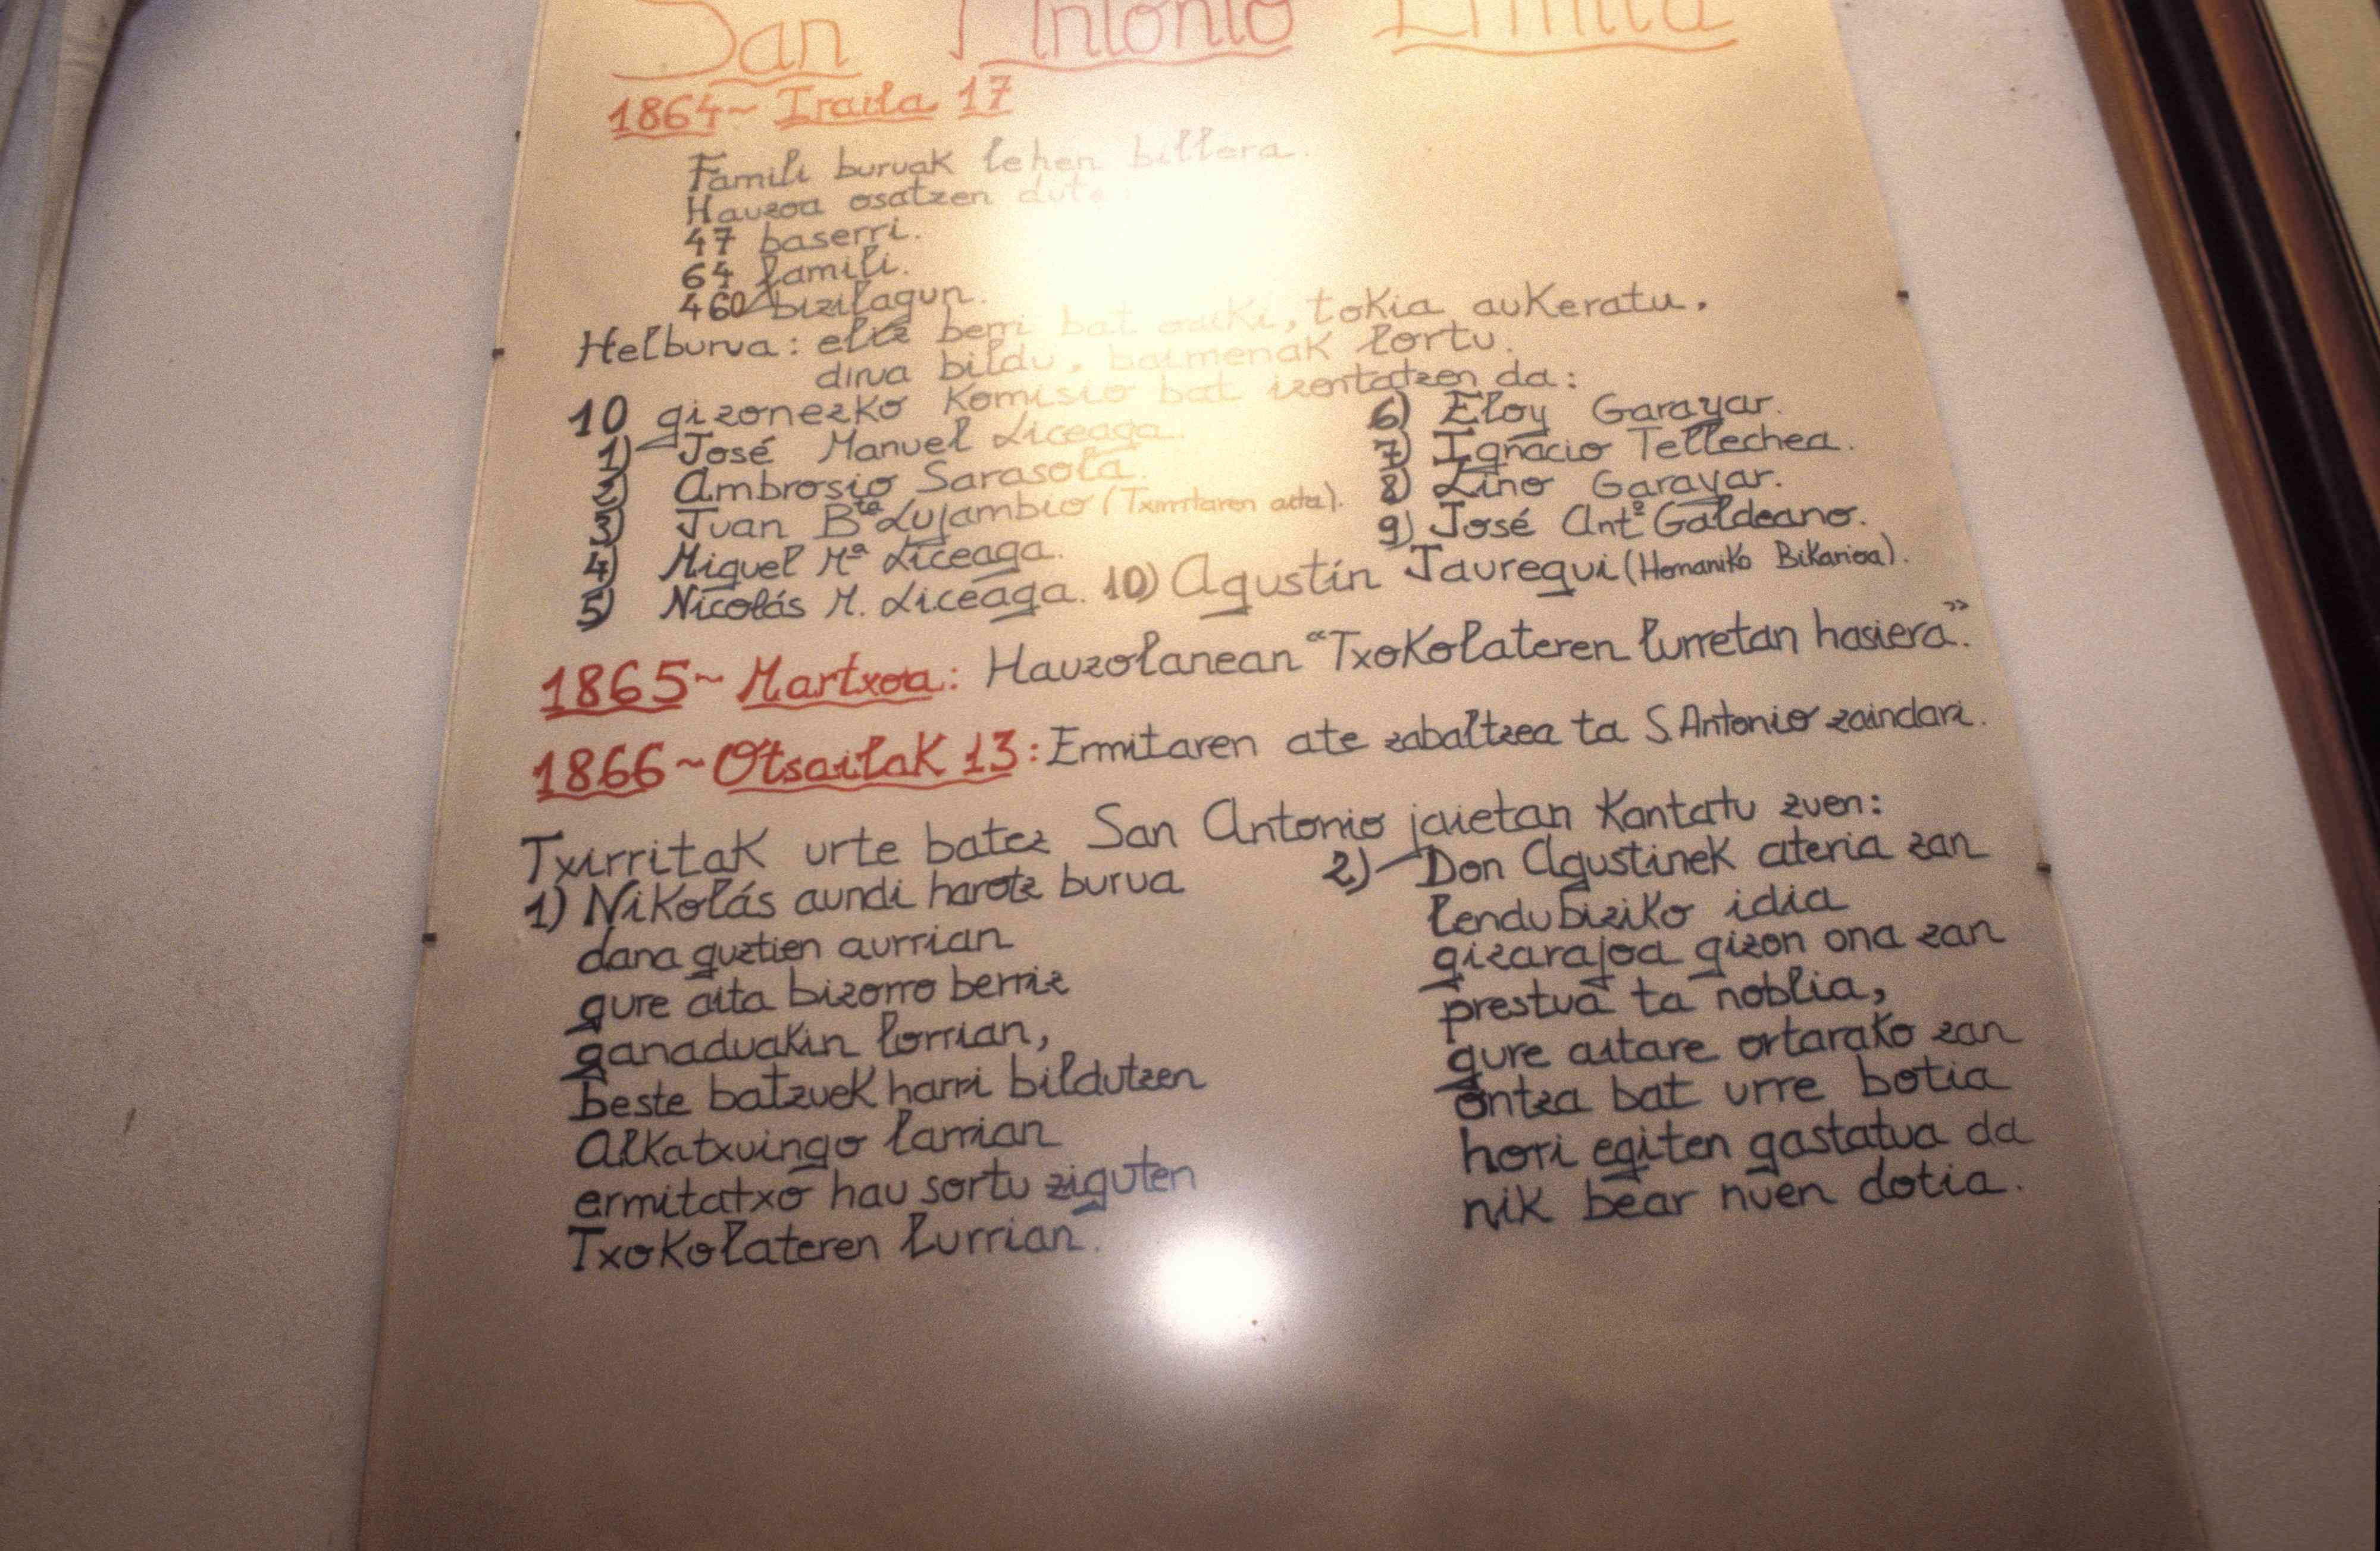 San Antonio Ermita
1864~ Iraila 17
Famili buruak lehen billera.
Hauzoa osatzen dute
47 baserri.
64 famili.
460 bizilagun.
Helburua: eliz berri bat eraiki, tokia aukeratu.
dirua bildu, baimenak lortu.
10 gizonezko Komisio bat izentatzen da:
1) José Manuel Liceaga.
2) Ambrosio Sarasola.
3) Juan Bta Lujambio (Txirritaren aita).
4) Miguel Mª Liceaga.
5) Nicolás M. Liceaga.
6) Eloy Garayar.
7) Ignacio Tellechea.
8) Lino Garayar.
9) José Antº Galdeano.
10) Agustín Jauregui (Hernaniko Bikarioa).
1865~ Martxoa: Hauzolanean “Txokolateren lurretan hasiera”.
1866~Otsailak 13: Ermitaren ate zabaltzea ta S. Antonio zaindari.
Txirritak urte batez San Antonio jaietan Kantatu zuen:
1) Nikolás aundi harotz burua
dana guztien aurrian
gure aita bizorro berriz
ganaduakin lorrian,
beste batzuek harri bildutzen
Alkatxuingo larrian
ermitatxo hau sortu ziguten
Txokolateren lurrian.
2) Don Agustinek ateria zan
lendubiziko idia
gizarajoa gizon ona zan
prestua ta noblia,
gure aitare ortarako zan
ontza bat urre botia
hori egiten gastatua da
nik bear nuen dotia.